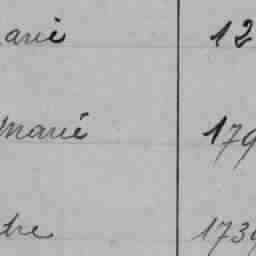 arié 12
marié 179
dre 1739